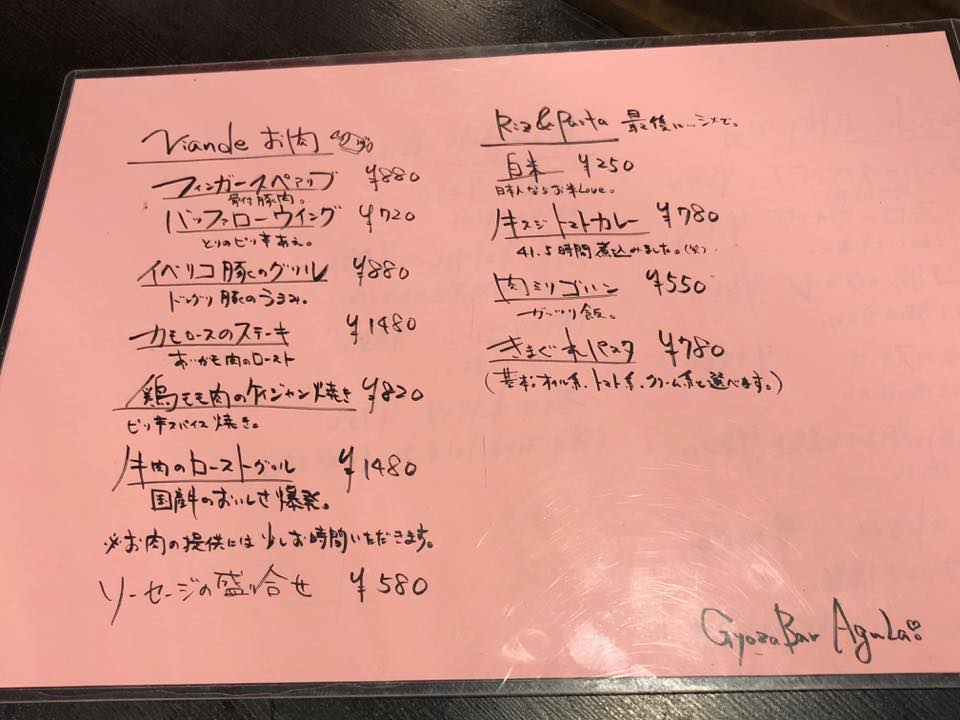 Viande お肉
フィンガースペアリブ ¥880
骨付豚肉。
バッファローウイング ¥720
とりのピリ辛あえ。
イベリコ豚のグリル ¥880
ドングリ豚のうまみ。
カモロースのステーキ ¥1480
あいがも肉のロースト
鶏モモ肉のケイジャン焼き ¥820
ピリ辛スパイス焼き。
牛肉のローストグリル ¥1480
国産牛のおいしさ爆発。
※お肉の提供には少しお時間いただきます。
ソーセージの盛り合せ ¥580
Riz & Pasta 最後に…シメで。
白米 ¥250
日本人ならお米Love。
牛スジトマトカレー ¥780
41.5時間煮込みました。(笑)
肉ミソゴハン ¥550
ガッツリ飯。
きまぐれパスタ ¥780
(基本オイル系、トマト系、クリーム系と選べます。)
Gyoza Bar AguLa